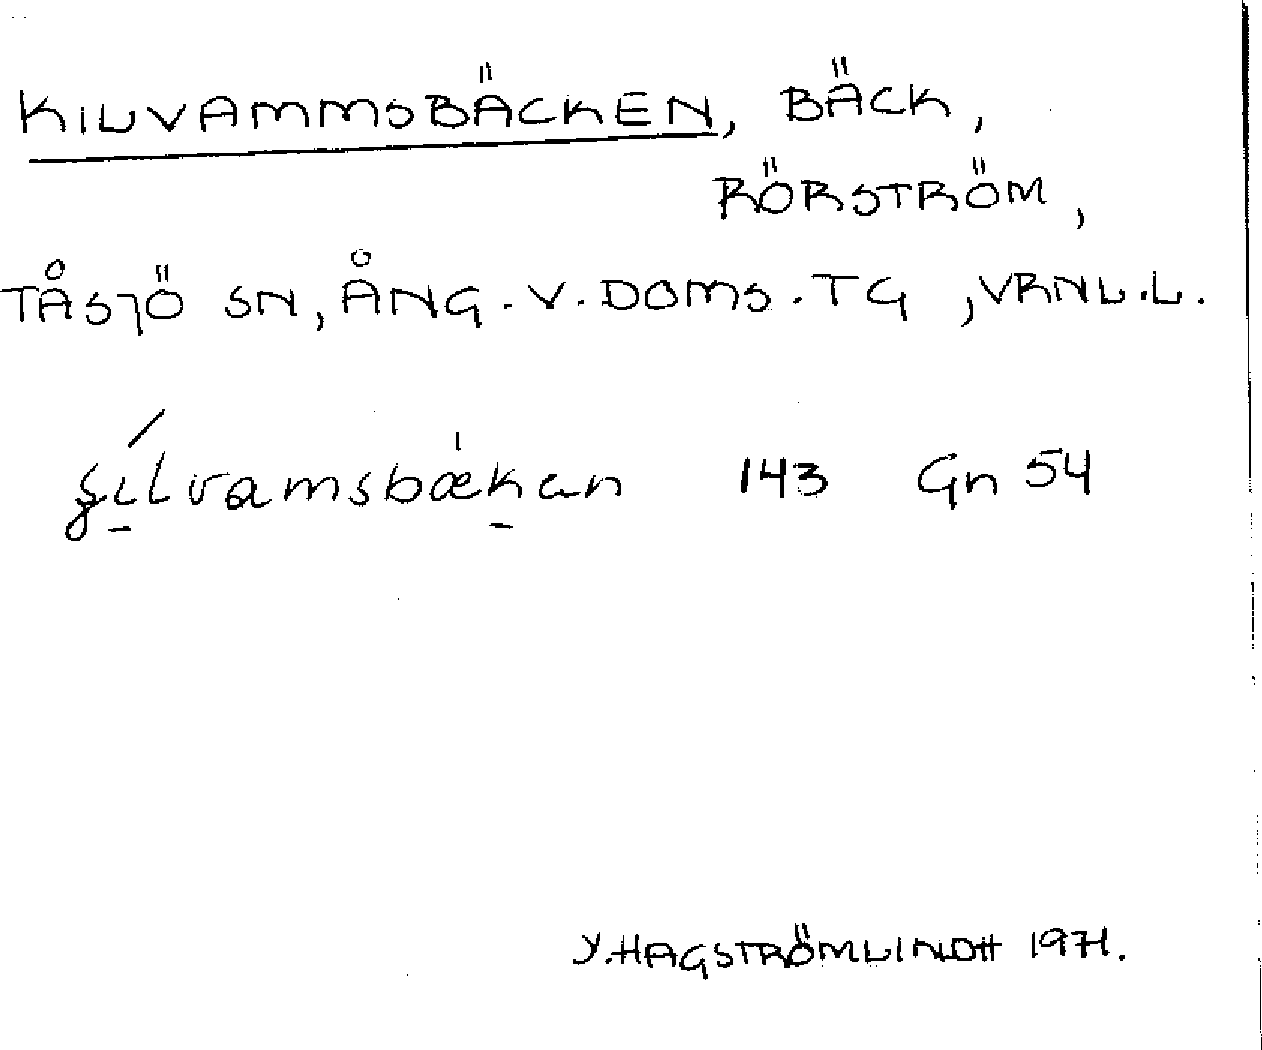 KILVAMMSBÄCKEN, BÄCK,
RÖRSTRÖM,
TÅSJÖ SN, ÅNG. V. DOMS. TG, VRNL.L.
143 Gn 54
Y. HAGSTRÖMLINDH 1971.